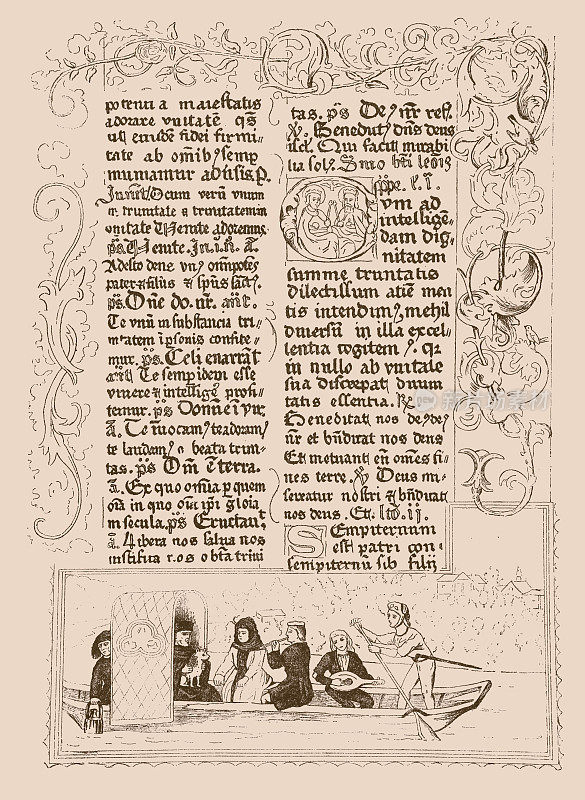 potentia maiestatis
adorare vnitatē qs
ut eiusdē fidei firmi
tate ab omībȝ semp
muniamur aduīsis P.
Inuit Ocum verū vnum
trinitate & trinitatem in
vnitate Venite adoremus
ps Venite. In. i. n. A.
Adesto deus vnꝰ omīpotēs
pater & filius & spūs sāctꝰ.
ps. Dn̄e do. nr̄. ant.
Te vnū in substancia tri-
nitatem ī psonis confite-
mur. ps. Celi enarrāt
Te semp idem esse
viuere & intelligē profi-
temur. ps Domine ī vir.
A. Te inuocamꝰ te adoramꝰ
te laudamꝰ o beata trini-
tas. ps Om̄ ē terra.
A. Ex quo om̄ia p quem
om̄ia in quo om̄ia ipī gloia
in secula. ps Eructauit
A Libera nos salua nos
iustifica nos o bēta trini
tas. ps Deꝰ nr̄ ref.
V. Benedictꝰ dn̄s deus
isrl. Qui facit mirabi
lia solꝰ. Smo bti leōis
ppe. l. i.
Vm ad
intellige-
dam dig-
nitatem
summe trinitatis
dilectissimi aciē men
tis intendimꝰ, nichil
diuersū in illa excel-
lentia cogitemꝰ. qr
in nullo ab vnitate
sua discrepat diuini
tatis essentia. R
Benedicat nos deꝰ deꝰ
nr̄ et bn̄dicat nos deus
Et metuant eū omēs fi-
nes terre. V Deus mi-
sereatur nostri & bn̄dicat
nos deus. Et. lcō. ii.
SEmpiternum
est patri con-
sempiternū sib filij